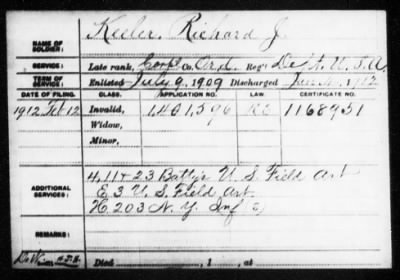 NAME OF SOLDIER: Keeler, Richard J.
SERVICE: Late rank, Corpl Co. Ord. Reg't Dept. U.S.A.
TERM OF SERVICE: Enlisted July 9, 1909 Discharged 1912
DATE OF FILING. CLASS. APPLICATION NO. LAW. CERTIFICATE NO.
1912 Feb 12 Invalid, 1,401,596 1168951
Widow,
Minor,
ADDITIONAL SERVICES: 4, 11 & 23 Batty's U.S. Field Art
E 3 U.S. Field Art.
H 203 N.Y. Inf
REMARKS:
Died , 1 , at